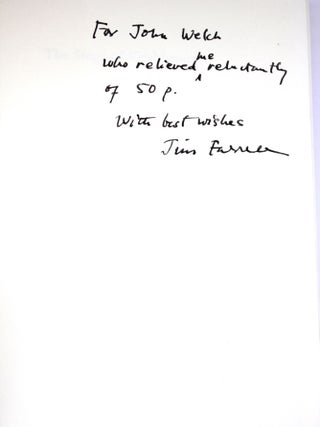 For John Welch
who relieved me reluctantly
of 50 p.
With best wishes
Jim Farrell